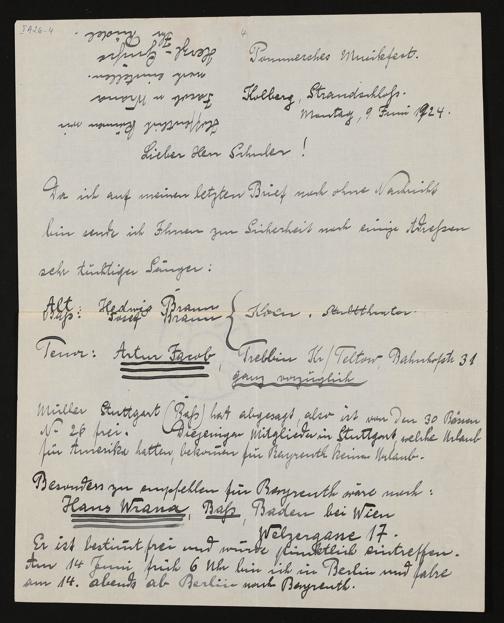 IA26-4
4
Pommersches Musikfest.
Kolberg, Strandschloß.
Montag, 9 Juni 1924.
Lieber Herr Schuler!
Da ich auf meinen letzten Brief noch ohne Nachricht
bin sende ich Ihnen zur Sicherheit noch einige Adressen
sehr tüchtiger Sänger:
Alt: Hedwig Braun
Baß: Josef Braun
Stadttheater.
Tenor: Artur Jacob, Trebbin Kr/Teltow, Bahnhofstr 31
ganz vorzüglich
Müller Stuttgart (Baß) hat abgesagt, also ist von den 30 Bässen
No 26 frei. Diejenigen Mitglieder in Stuttgart, welche Urlaub
für Amerika hatten, bekommen für Bayreuth keinen Urlaub.
Besonders zu empfehlen für Bayreuth wäre noch:
Hans Wrana, Baß, Baden bei Wien
Welzergasse 17.
Er ist bestimmt frei und würde pünktlich eintreffen.
Am 14 Juni früh 6 Uhr bin ich in Berlin und fahre
am 14. abends ab Berlin nach Bayreuth.
Hoffentlich können wir
Jacob u Wrana
noch einstellen.
Herzl. Grüße
Ihr Rüdel.